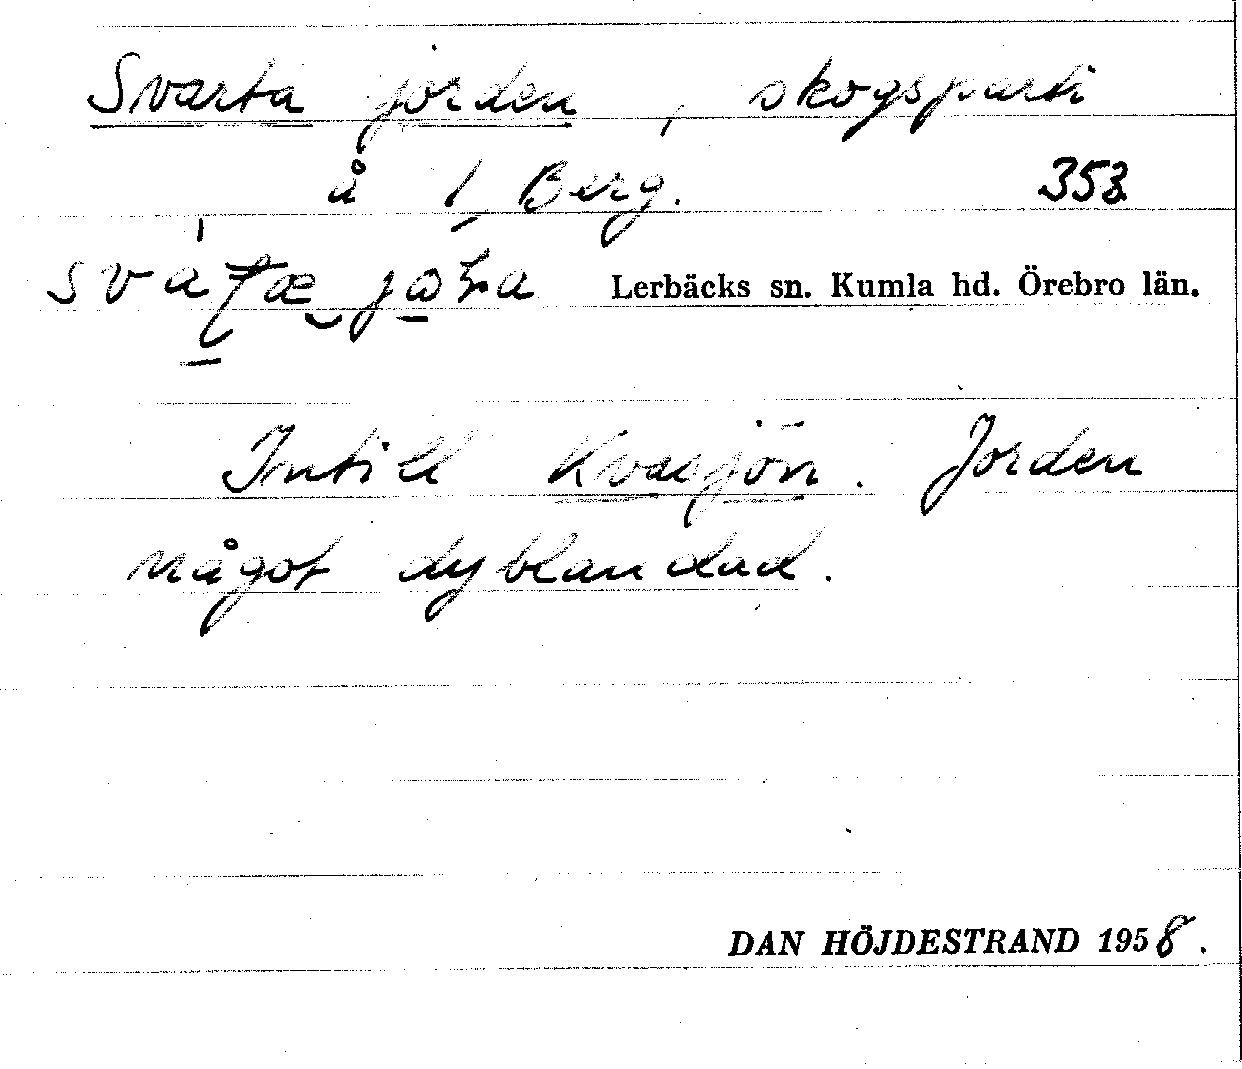 Svarta jorden, skogsparti
å 1 Berg. 353
Lerbäcks sn. Kumla hd. Örebro län.
Intill Kvarsjön. Jorden
något dyblandad.
DAN HÖJDESTRAND 1958.